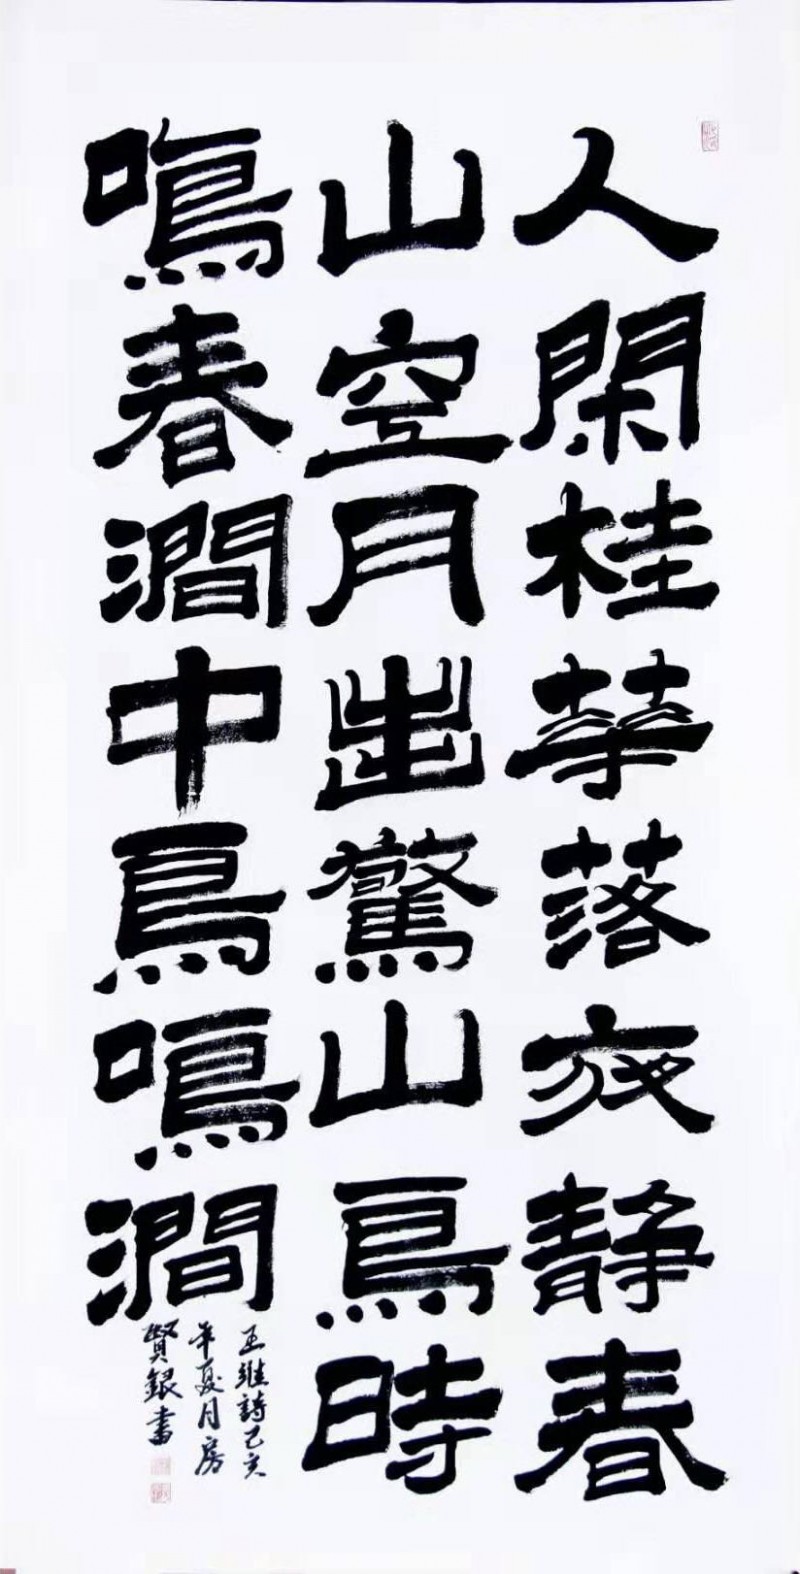 人閑桂華落夜静春
山空月出驚山鳥時
鳴春澗中鳥鳴澗
王維詩己亥
年夏月房
賢銀書